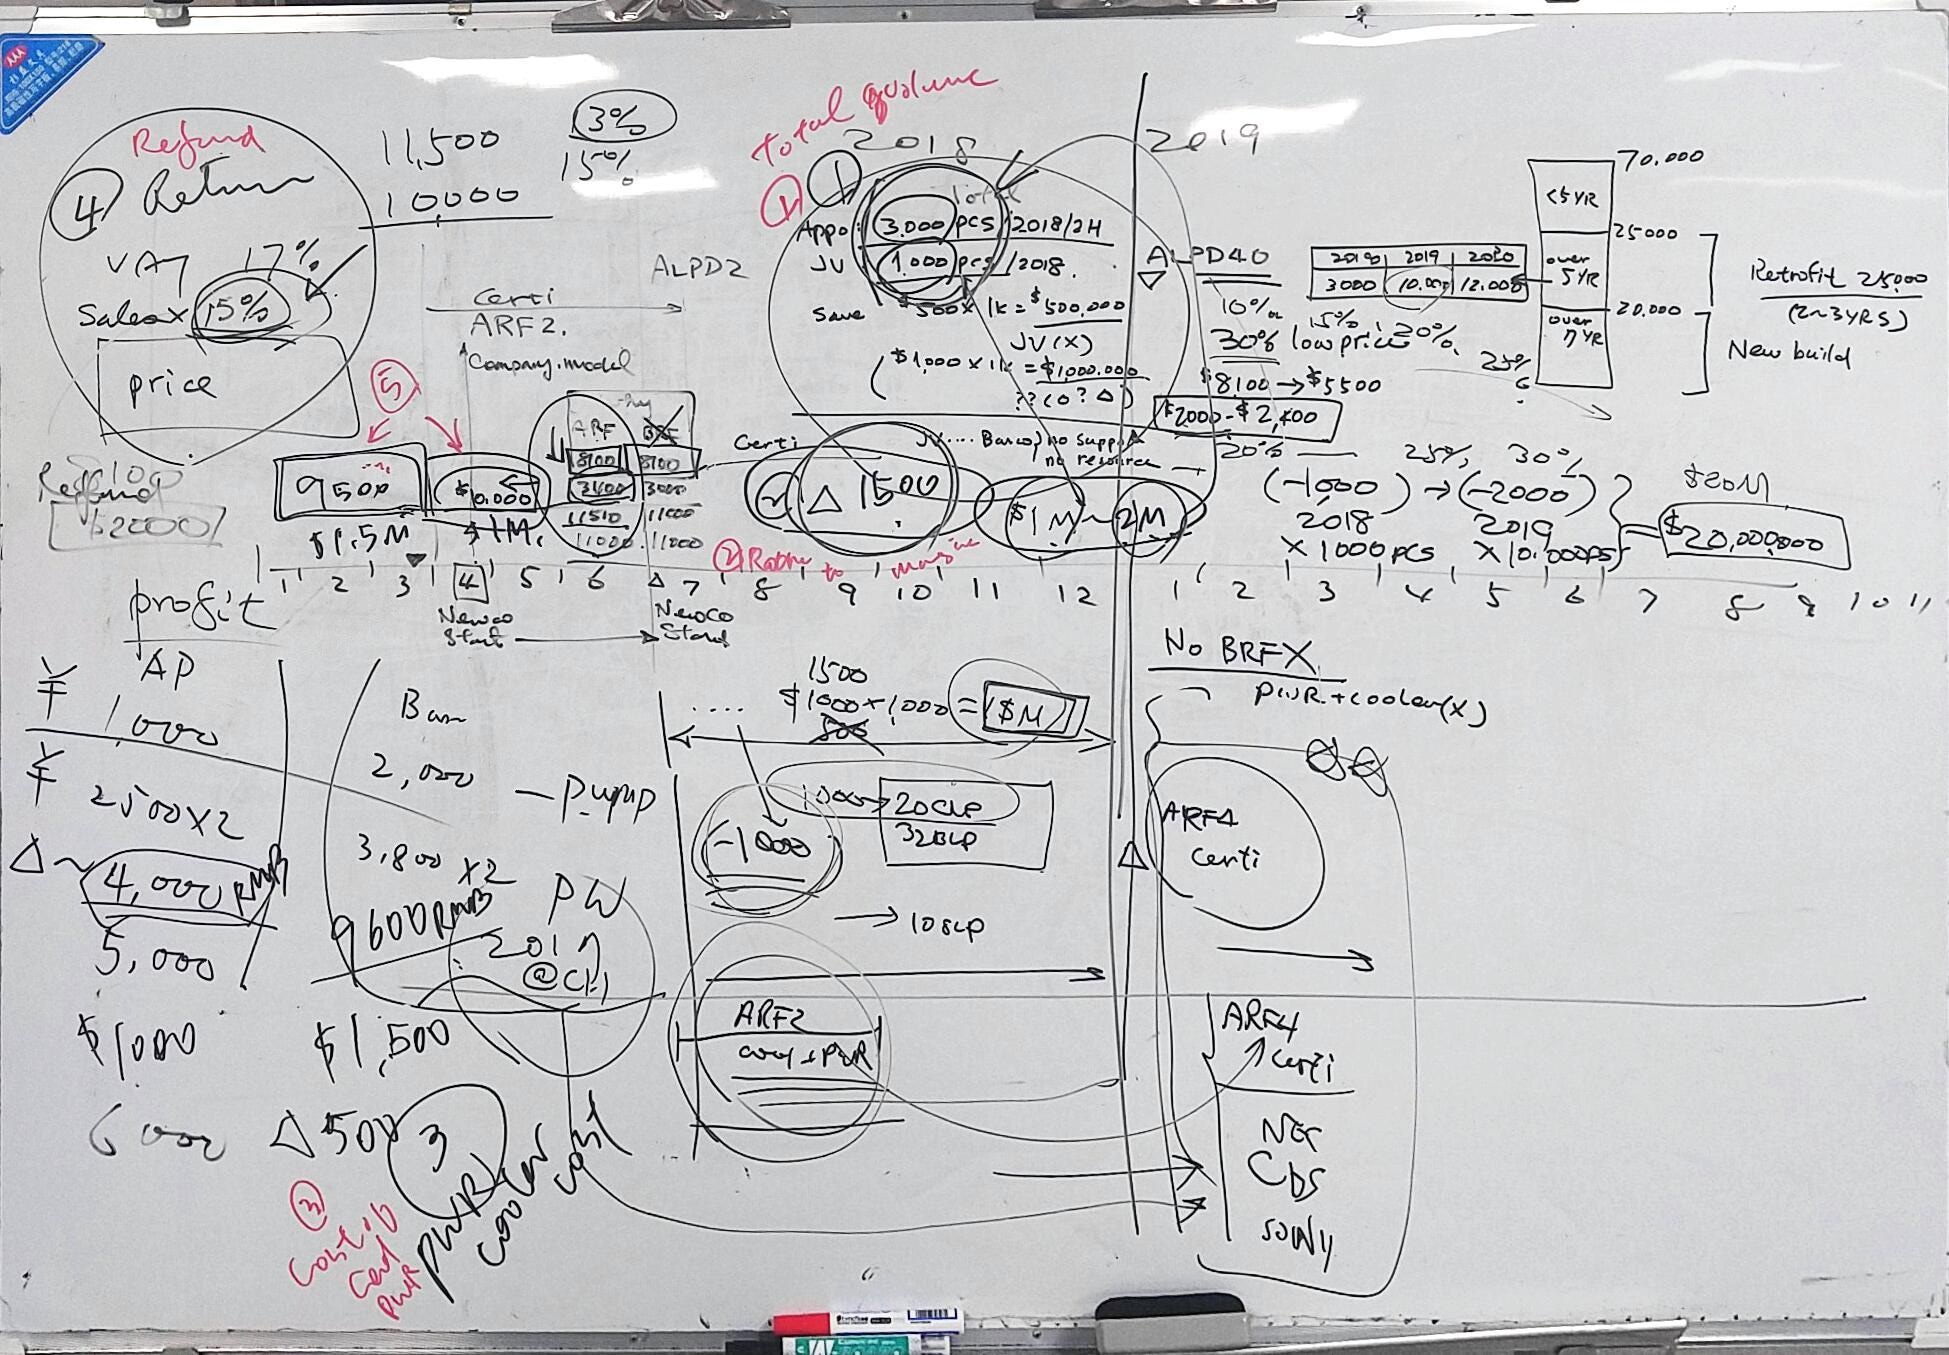 Refund
④ Return
VAT 17%
Salesx 15%
price
11,500
10,000
13%
15%
Total
2018
2019
①
①
Total
Appo: 3.000 pcs/2018/2H
JV 1.000 pcs/2018.
save $500 x 1k = $500.000
JV (X)
($1,000 x 1k = $1,000.000
??(0? △)
JV.... Barco) no support
no resource
ALPD2
Certi
ARF2.
Company.model
⑤
ARF
8100 8100
3400 3000
11510 11000
11000 11000
Certi
9500
$1.5M
$10.000
$1M.
△ 1500
$1M ~ 2M
② to
Refund
$2000
ALPD40
10%
15%
30% low price 20%.
$8,100 → $5500
$2000 - $2,400
20% 25%, 30%
(-1000) → (-2000)
2018 2019
x 1000 pcs x 10.000 pcs
$20M
= $20,000,000
2018 2019 2020
3000 10.000 12.000
25%
70.000
<5YR
25000
over 5YR
20.000
over 7YR
Retrofit 25.000
(2~3YRS)
New build
1 2 3 4 5 6 7 8 9 10 11 12 1 2 3 4 5 6 7 8 9 10 11
Newco Start
NewCo Start
profit
AP
¥ 1,000
¥ 2500x2
△~ 4,000 RMB
5,000
$1000
6000
2,000
3,800 x2
9600RMB
$1,500
△ 500
— Pump
PW
2017
3
PWR
cooler
cost
③
Cost
PWR
1500
.... $1000 x 1,000 = ($M)
500
1000→ 20CLP
32BLP
-1000
→ 10SLP
ARF2
cool + PWR
No BRFX
PWR.+cooler(x)
ARF4
Certi
ARF4
Certi
NEC
CDS
SONY